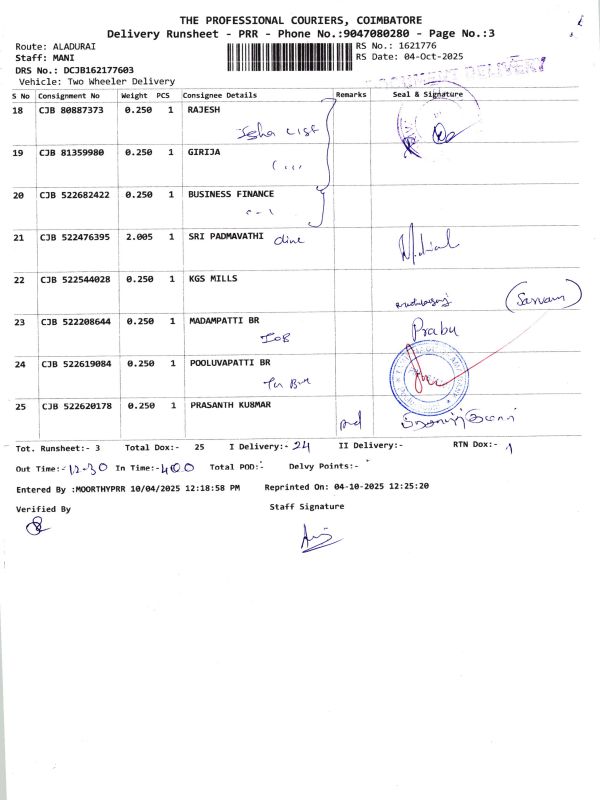 THE PROFESSIONAL COURIERS, COIMBATORE
Delivery Runsheet - PRR - Phone No.:9047080280 - Page No.:3
Route: ALADURAI RS No.: 1621776
Staff: MANI RS Date: 04-Oct-2025
DRS No.: DCJB162177603
Vehicle: Two Wheeler Delivery
DOCUMENT DELIVERY
S No Consignment No Weight PCS Consignee Details Remarks Seal & Signature
18 CJB 80887373 0.250 1 RAJESH
Isha
19 CJB 81359980 0.250 1 GIRIJA
20 CJB 522682422 0.250 1 BUSINESS FINANCE
21 CJB 522476395 2.005 1 SRI PADMAVATHI
22 CJB 522544028 0.250 1 KGS MILLS
23 CJB 522208644 0.250 1 MADAMPATTI BR
IOB Prabu
24 CJB 522619084 0.250 1 POOLUVAPATTI BR
25 CJB 522620178 0.250 1 PRASANTH KU8MAR
Tot. Runsheet:- 3 Total Dox:- 25 I Delivery:- 24 II Delivery:- RTN Dox:- 1
Out Time:- 12-30 In Time:- 400 Total POD:- Delvy Points:-
Entered By :MOORTHYPRR 10/04/2025 12:18:58 PM Reprinted On: 04-10-2025 12:25:20
Verified By Staff Signature